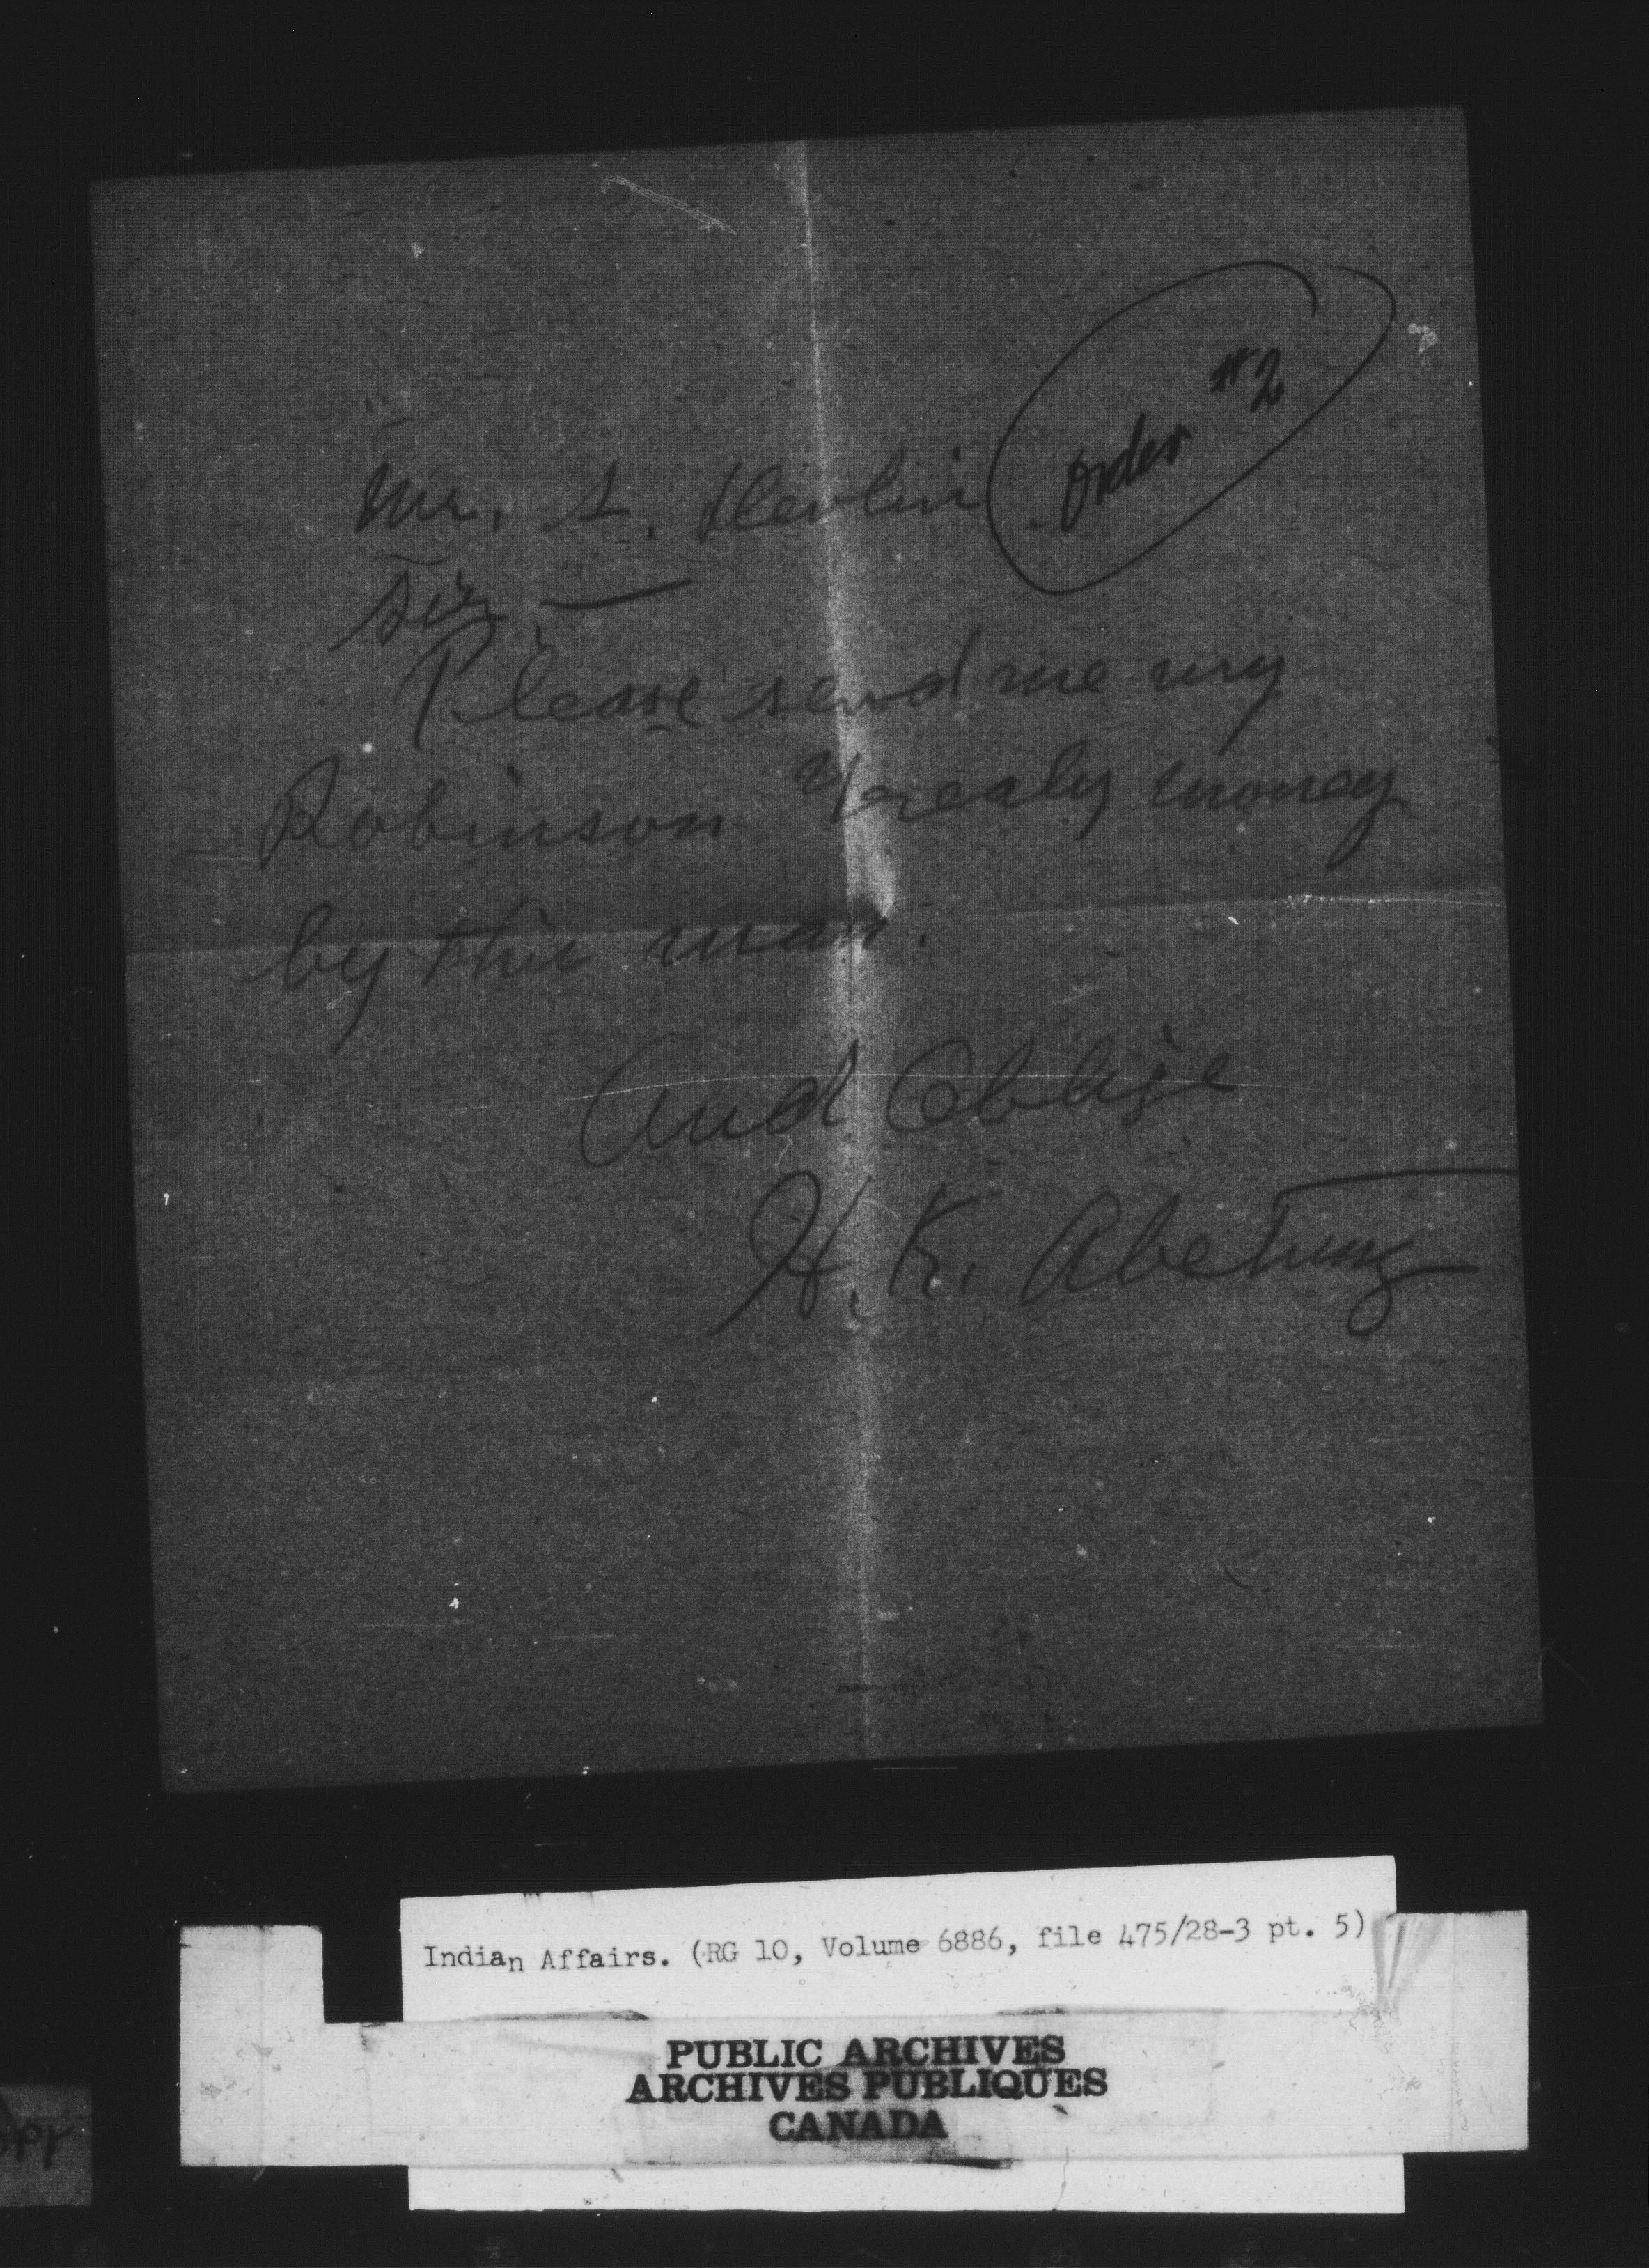 Order #2
Mr. A. Devlin
Sir, —
Please send me my
Robinson Yrealy money
by this man.
And Oblige
H. K. Abetung
Indian Affairs. (RG 10, Volume 6886, file 475/28-3 pt. 5)
PUBLIC ARCHIVES
ARCHIVES PUBLIQUES
CANADA